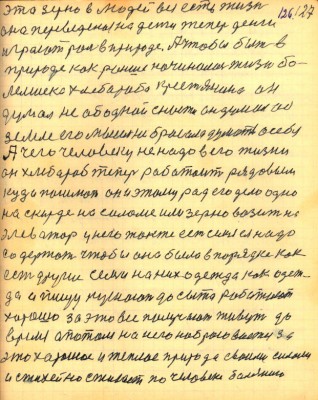 это зерно в людей вся есть жизнь
она переведена на дети теперь деньги
играют рол в природе. А чтобы быть в
природе как раньше начиналась жизнь бо-
хлебороба крестянина он
думал не об одной он думал об
земле его мысли думать о себе
А чего человеку не надо в его жизни
он хлебороб теперь работает рядовым
куда пошлют он и этому рад его дело одно
на скирде на соломе или зерно возить на
элеватор у него тоже есть семья надо
содержат чтобы она была в порядке как
есть другие семи на них одежда как одеж-
да и пищу кушают до сыта работают
хорошо за это все получают живут до
время а потом на него за
это хорошое и теплое природа своими силами
и стихейно по человеки
126/27